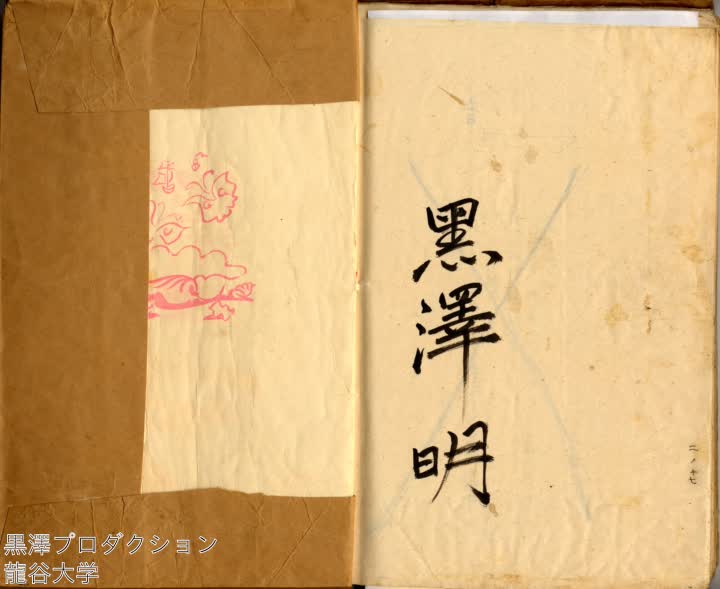 黒澤明
二ノ十七
黒澤プロダクション
龍谷大学